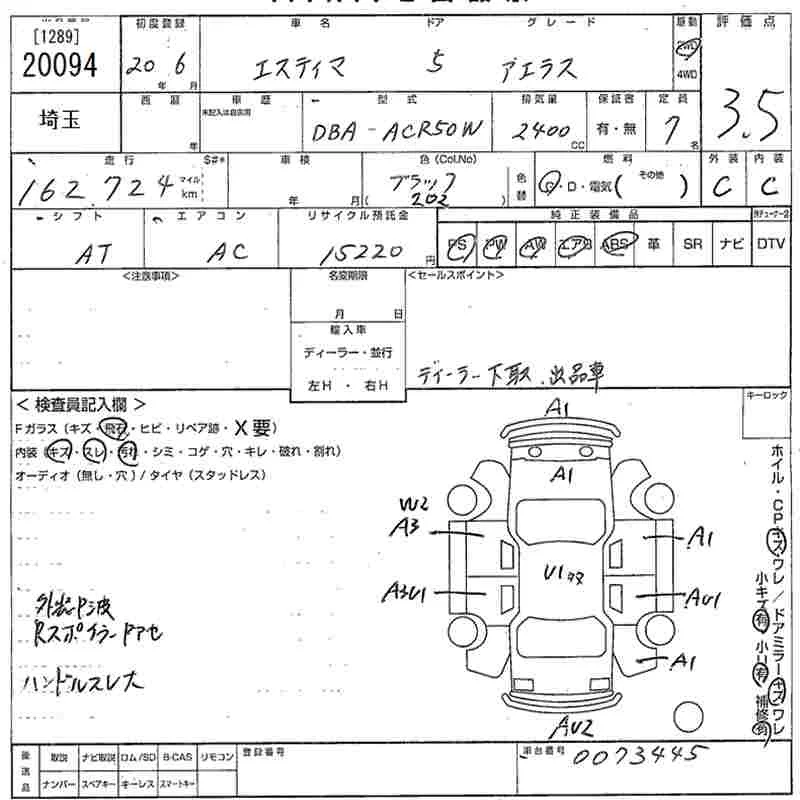 [1289]
20094
初度登録
20 年 6 月
車名
エスティマ
ドア
5
グレード
アエラス
駆動
2WD
4WD
評価点
3.5
埼玉
西暦
年
車歴
未記入は自家用
型式
DBA-ACR50W
排気量
2400 CC
保証書
有・無
定員
7 名
走行
S#*
162,724 マイル km
車検
年 月
色(Col.No)
ブラック
( 202 )
色替
燃料
G・D・電気( その他 )
外装
C
内装
C
シフト
AT
エアコン
AC
リサイクル預託金
15220 円
純正装備品
PS PW AW エアB ABS 革 SR ナビ DTV
<注意事項>
名変期限
月 日
輸入車
ディーラー・並行
左H・右H
<セールスポイント>
ディーラー下取、出品車
キーロック
< 検査員記入欄 >
Fガラス(キズ・飛石・ヒビ・リペア跡・X要)
内装(キズ・スレ・汚れ・シミ・コゲ・穴・キレ・破れ・割れ)
オーディオ(無し・穴)/タイヤ(スタッドレス)
Rスポイラー
ハンドルスレ大
A1
A1
W2
A3
A1
U1
A3U1
AU1
A1
AU2
ホイル・CPキズ・ワレ/ドアミラーキズ・ワレ
小キズ有 小U有 補修有
後送品
取説 ナビ取説 ロム/SD B-CAS リモコン
ナンバー スペアキー キーレス スマートキー
登録番号
車台番号
0073445